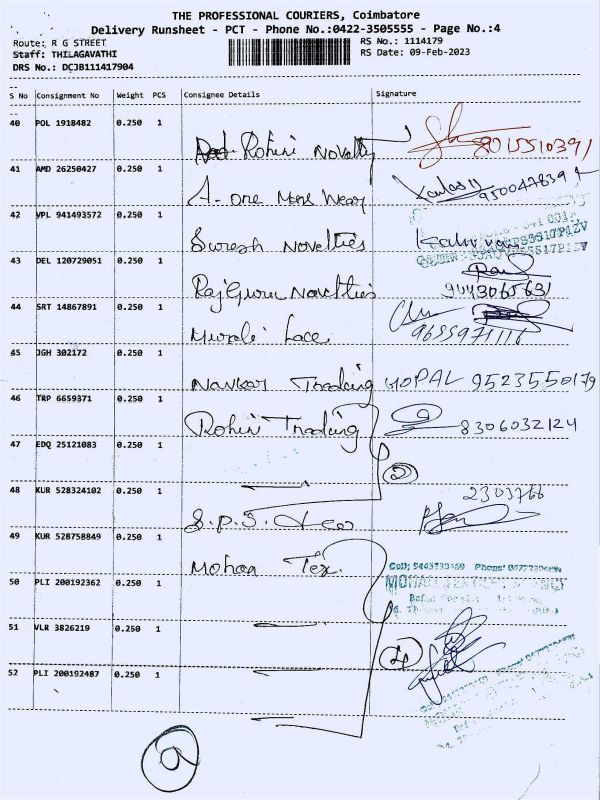 THE PROFESSIONAL COURIERS, Coimbatore
Delivery Runsheet - PCT - Phone No.:0422-3505555 - Page No.:4
Route: R G STREET
RS No.: 1114179
Staff: THILAGAVATHI
RS Date: 09-Feb-2023
DRS No.: DCJB111417904
S No Consignment No Weight PCS Consignee Details Signature
40 POL 1918482 0.250 1
Rohini Novelty 8015510391
41 AMD 26250427 0.250 1
A-one Mens Wear
42 VPL 941493572 0.250 1
Suresh Novelties
43 DEL 120729051 0.250 1
Raj Guru Novelties 9043065631
44 SRT 14867891 0.250 1
Murali Lace 9655971116
45 JGH 302172 0.250 1
Navkar Trading GOPAL 9523550179
46 TRP 6659371 0.250 1
Rohini Trading 8306032124
47 EDQ 25121083 0.250 1
2
48 KUR 528324102 0.250 1
2303766
S.P.S.
49 KUR 528758849 0.250 1
Mohan Tex.
50 PLI 200192362 0.250 1
51 VLR 3826219 0.250 1
4
52 PLI 200192487 0.250 1